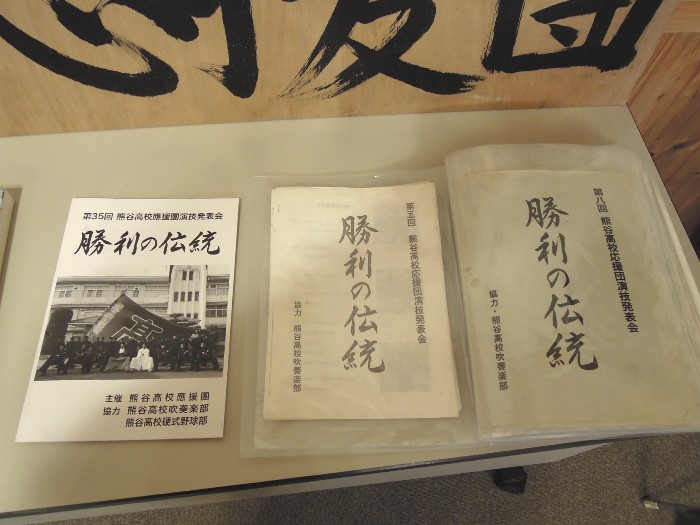 援団
第35回 熊谷高校應援團演技発表会
勝利の伝統
主催 熊谷高校應援團
協力 熊谷高校吹奏楽部
熊谷高校硬式野球部
第五回 熊谷高校応援団演技発表会
勝利の伝統
協力 熊谷高校吹奏楽部
第八回 熊谷高校応援団演技発表会
勝利の伝統
協力・熊谷高校吹奏楽部